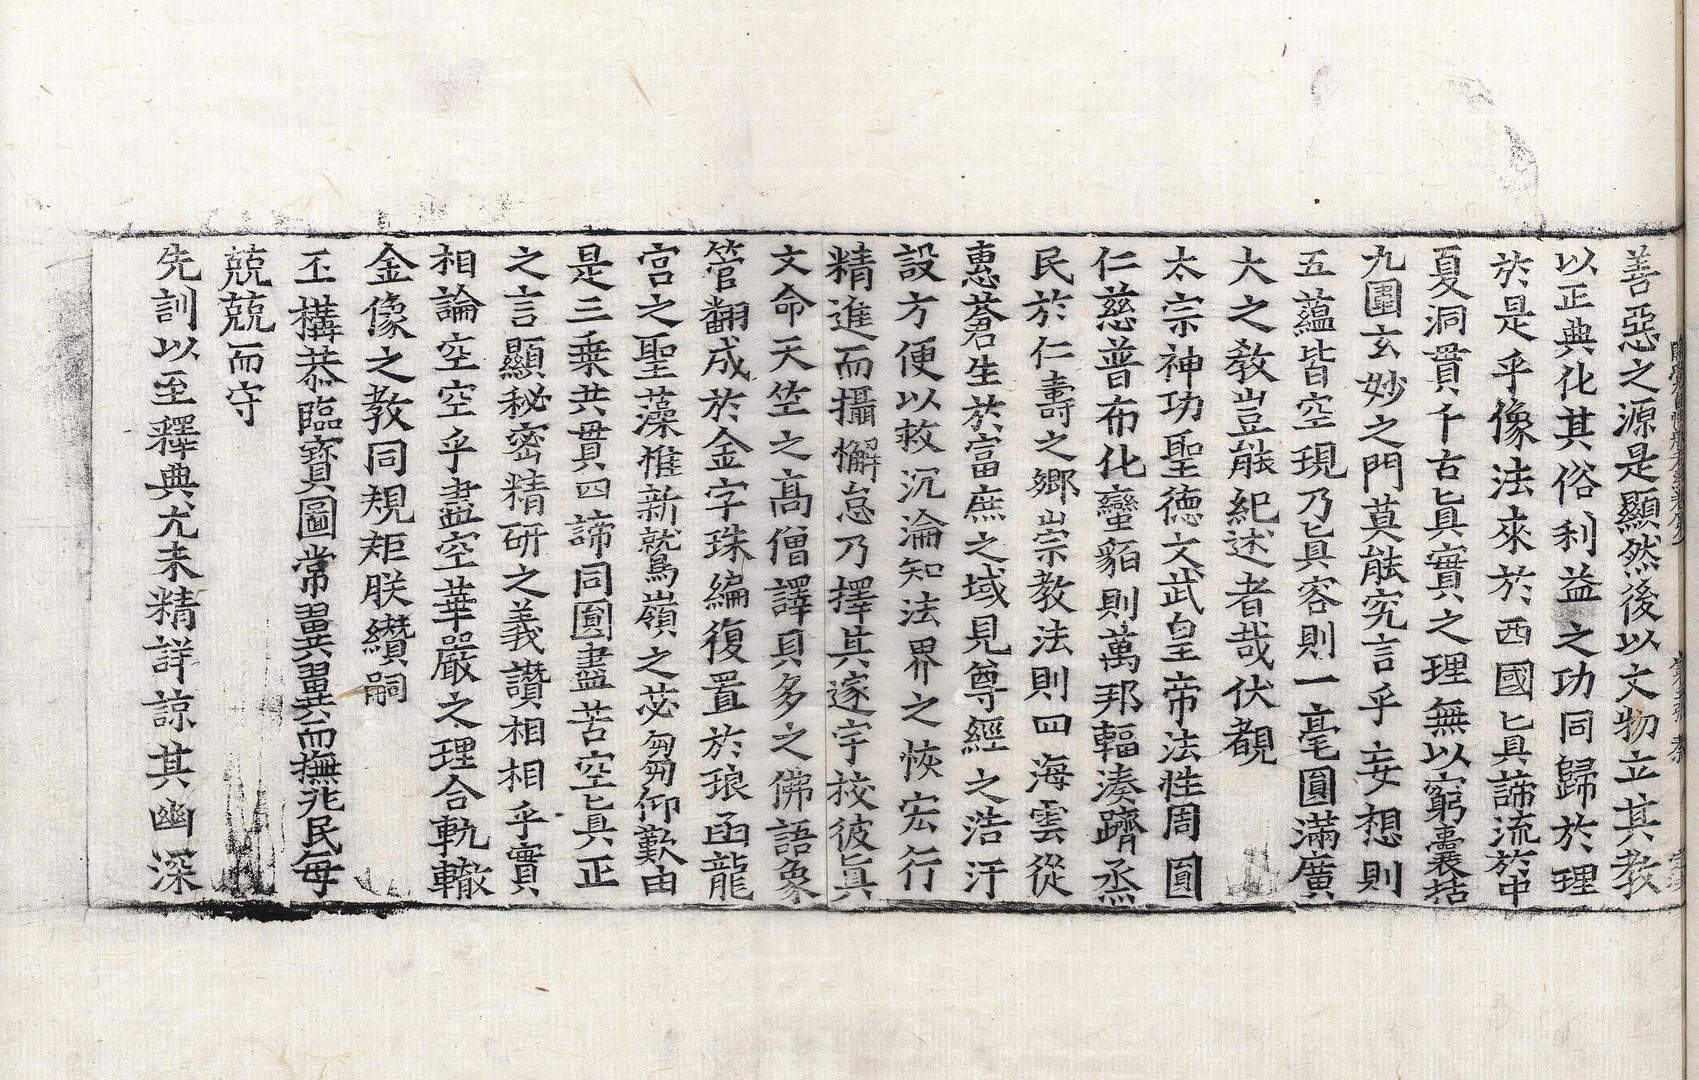 善惡之源是顯然後以文物立其教
以正典化其俗利益之功同歸於理
於是乎像法來於西國眞諦流於中
夏洞貫千古眞實之理無以窮囊括
九圍玄妙之門莫能究言乎妄想則
五蘊皆空現乃眞容則一毫圓滿廣
大之敎豈能紀述者哉伏覩
太宗神功聖德文武皇帝法性周圓
仁慈普布化蠻貊則萬邦輻湊躋烝
民於仁壽之鄉崇教法則四海雲從
惠蒼生於富庶之域見尊經之浩汗
設方便以救沉淪知法界之恢宏行
精進而攝懈怠乃擇其邃宇校彼眞
文命天竺之高僧譯貝多之佛語象
管翻成於金字珠編復置於琅函龍
宮之聖藻惟新鷲嶺之苾芻仰歎由
是三乘共貫四諦同圓盡苦空眞正
之言顯秘密精研之義讚相相乎實
相論空空乎盡空華嚴之理合軌轍
金像之教同規矩朕纘嗣
丕構恭臨寶圖常翼翼而撫兆民每
兢兢而守
先訓以至釋典尤未精詳諒其幽深